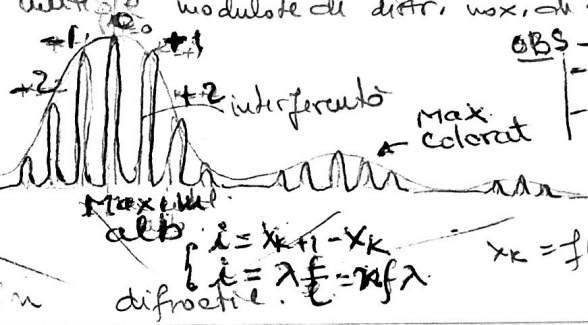 modulate de distr. max. de
0
-1 +1 OBS
-2 +2 interferență
Max
colorat
Maximul
alb
i = x_{k+1} - x_k
i = λ f/l = n f λ x_k = f
difracție.